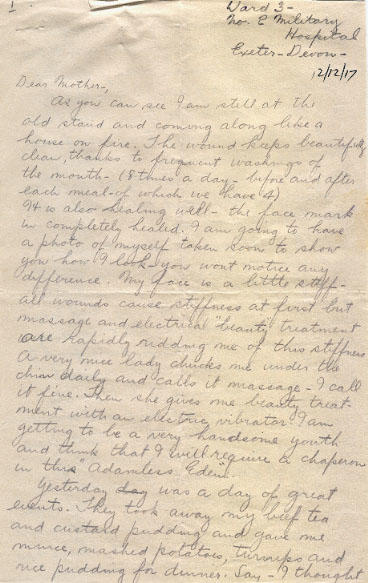 1.
Ward 3-
No. E Military
Hospital
Exeter-Devon-
12/12/17
Dear Mother-,
As you can see I am still at the
old stand and coming along like a
house on fire. The wound keeps beautifully
clean, thanks to frequent washings of
the mouth- (8 times a day- before and after
each meal-of which we have 4)
It is also healing well- the face mark
is completely healed. I am going to have
a photo of myself taken soon to show
you how I look- you wont notice any
difference. My face is a little stiff-
all wounds cause stiffness at first but
massage and electrical "beauty" treatment
are rapidly ridding me of this stiffness
A very nice lady chucks me under the
chin daily and calls it massage- I call
it fine. Then she gives me beauty treat-
ment with an electric vibrator. I am
getting to be a very handsome youth
and think that I will require a chaperon
in this Adamless Eden".
Yesterday was a day of great
events. They took away my beef tea
and custard pudding and gave me
mince, mashed potatoes, turnips and
rice pudding for dinner. Say- I thought